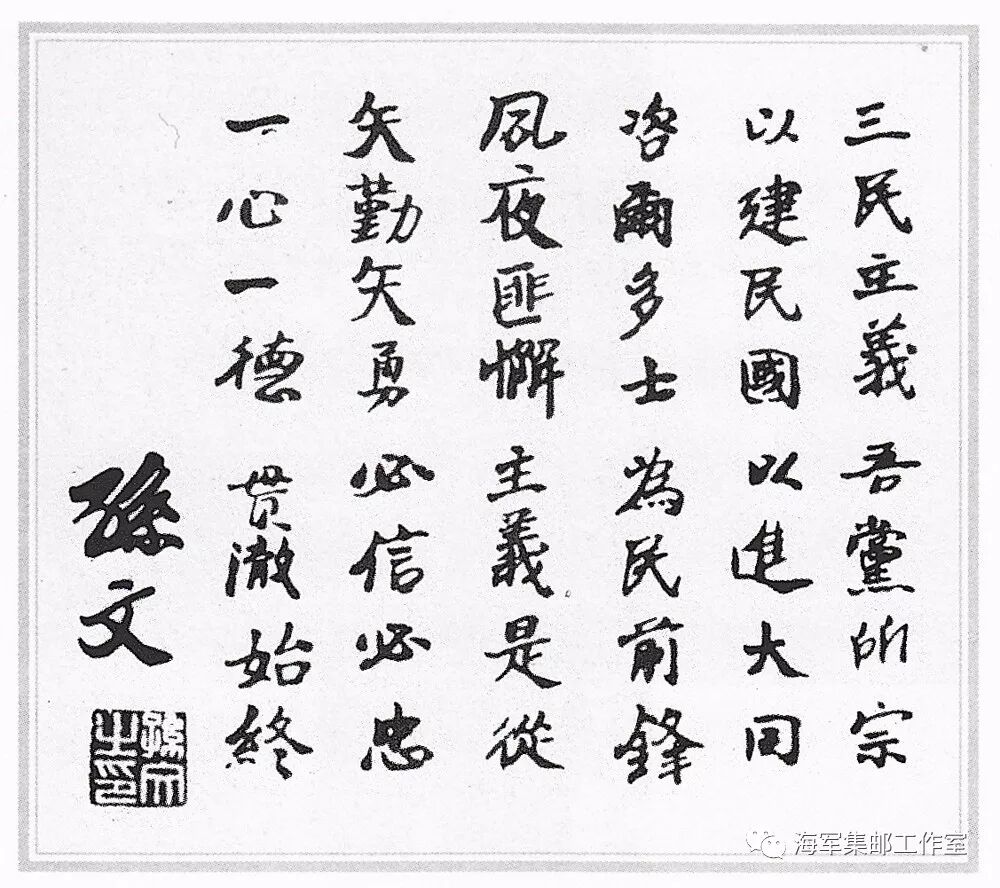 三民主義 吾黨所宗
以建民國 以進大同
咨爾多士 為民前鋒
夙夜匪懈 主義是從
矢勤矢勇 必信必忠
一心一德 貫澈始終
孫文
孫文之印
海军集邮工作室